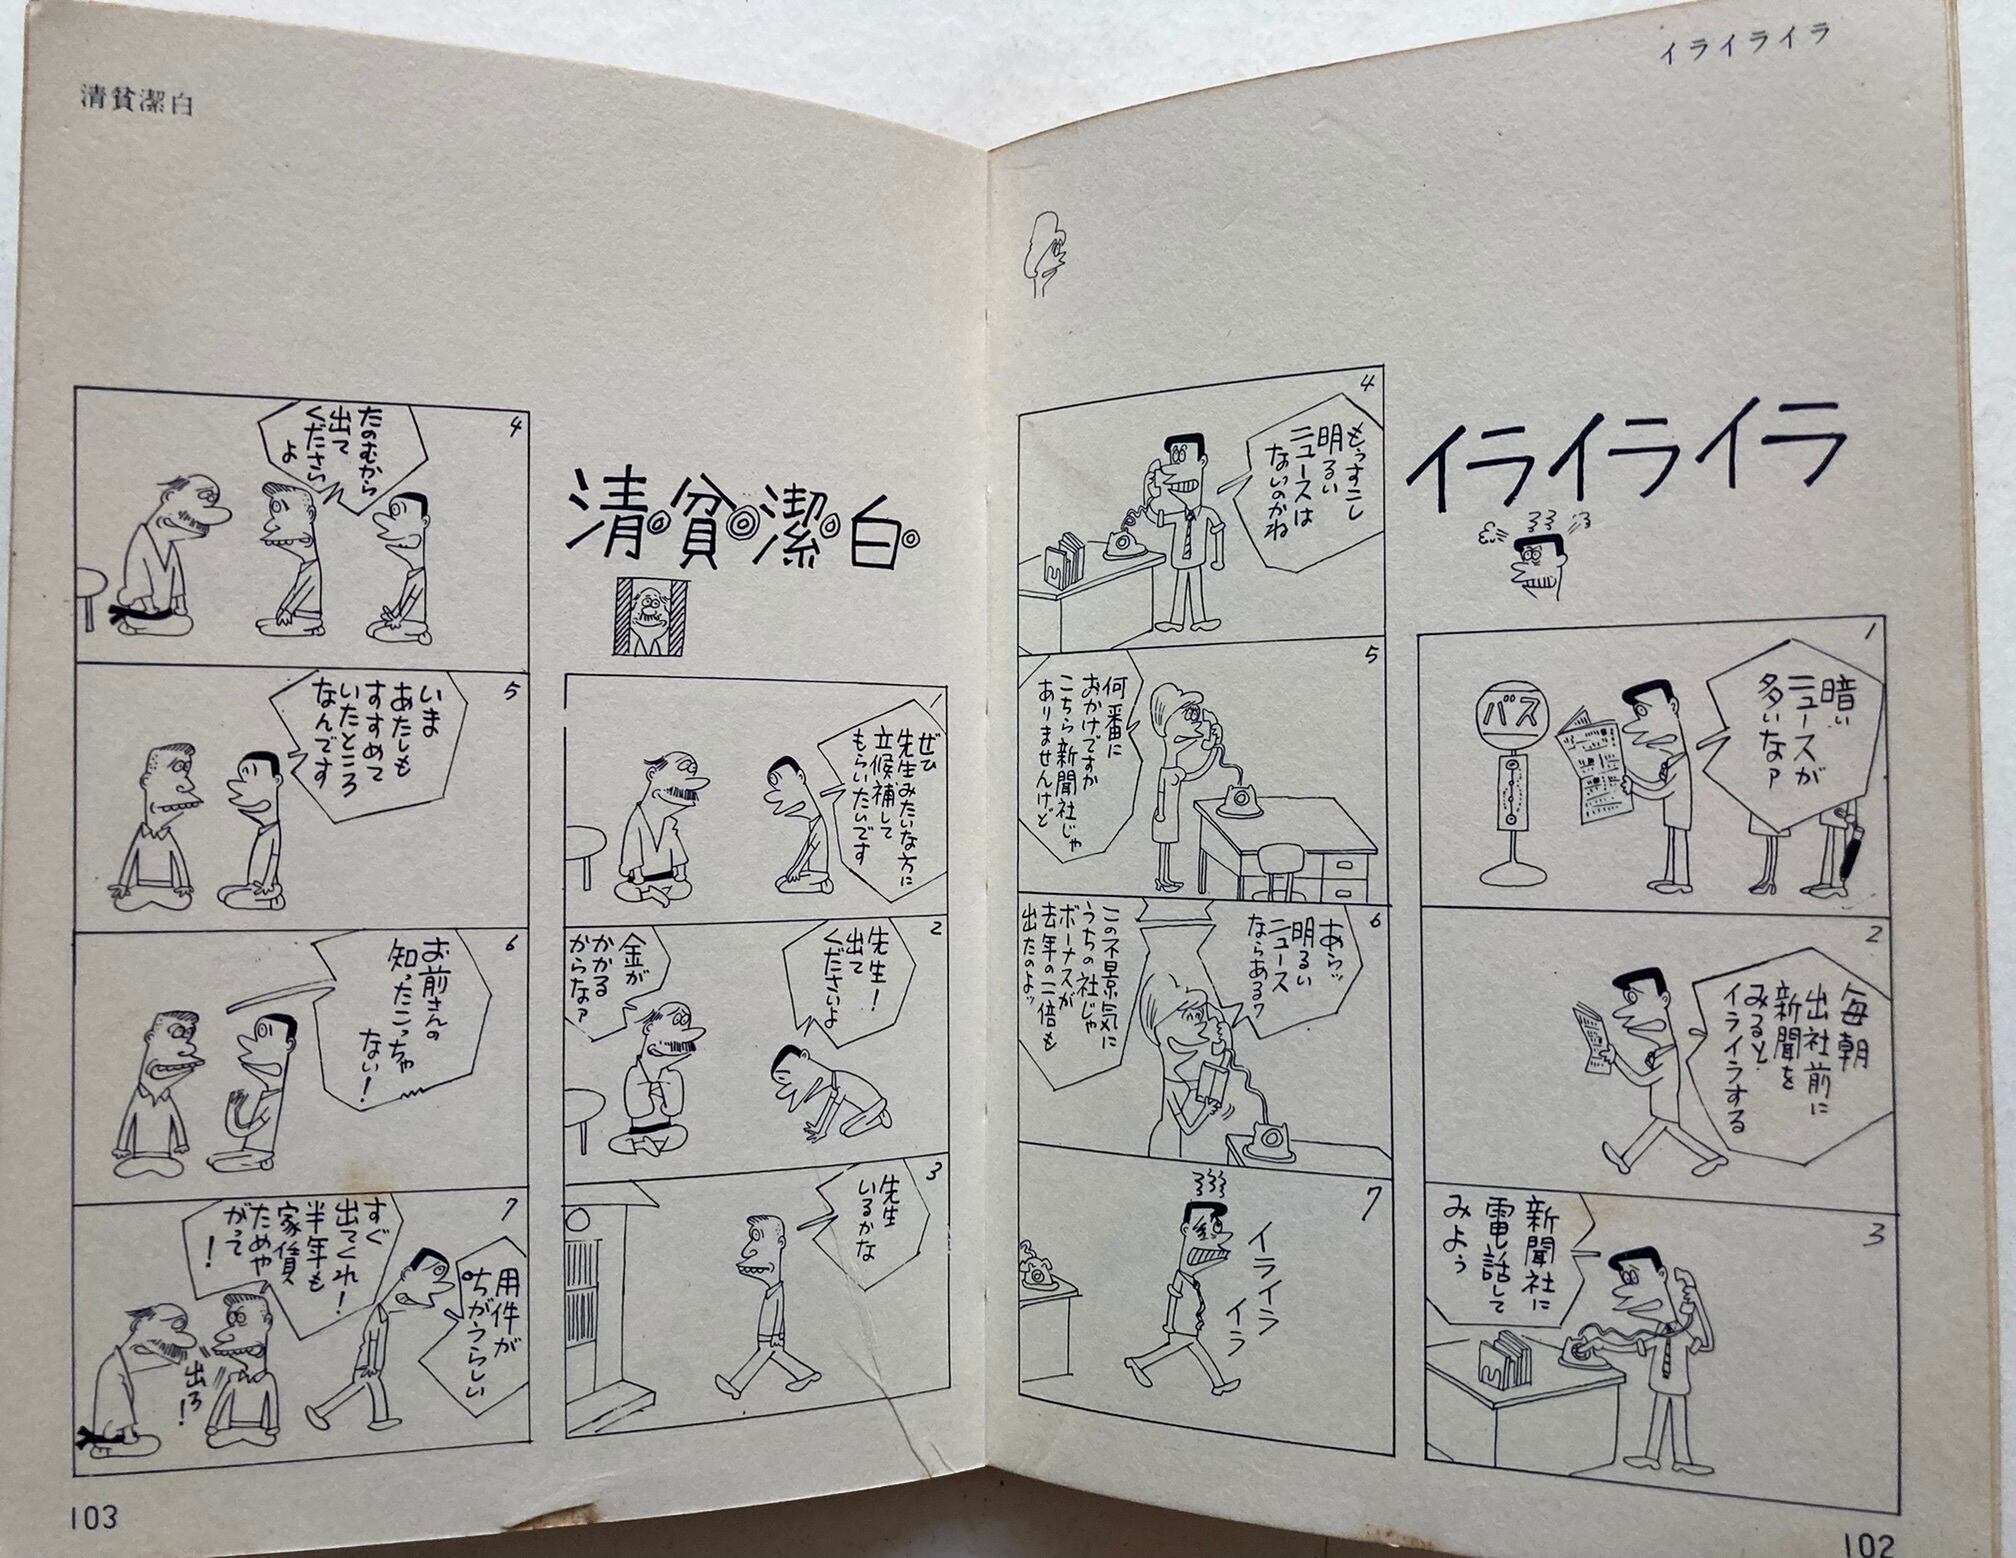 イライライラ
イライライラ
1
暗い
ニュースが
多いなァ
バス
2
毎朝
出社前に
新聞を
みると
イライラする
3
新聞社に
電話して
みよう
4
もうすこし
明るい
ニュースは
ないのかね
5
何番に
おかけですか
こちら新聞社じゃ
ありませんけど
6
あらッ
明るい
ニュース
ならある?
この不景気に
うちの社じゃ
ボーナスが
去年の二倍も
出たのよッ
7
イライラ
イラ
102
清貧潔白
清貧潔白
1
ぜひ
先生みたいな方に
立候補して
もらいたいです
2
先生!
出て
くださいよ
金が
かかる
からなァ
3
先生
いるかな
4
たのむから
出て
くださいよ
5
いま
あたしも
すすめて
いたところ
なんです
6
お前さんの
知ったこっちゃ
ない!
7
用件が
ちがうらしい
すぐ
出てくれ!
半年も
家賃
ためや
がって
!
出ろ!
103